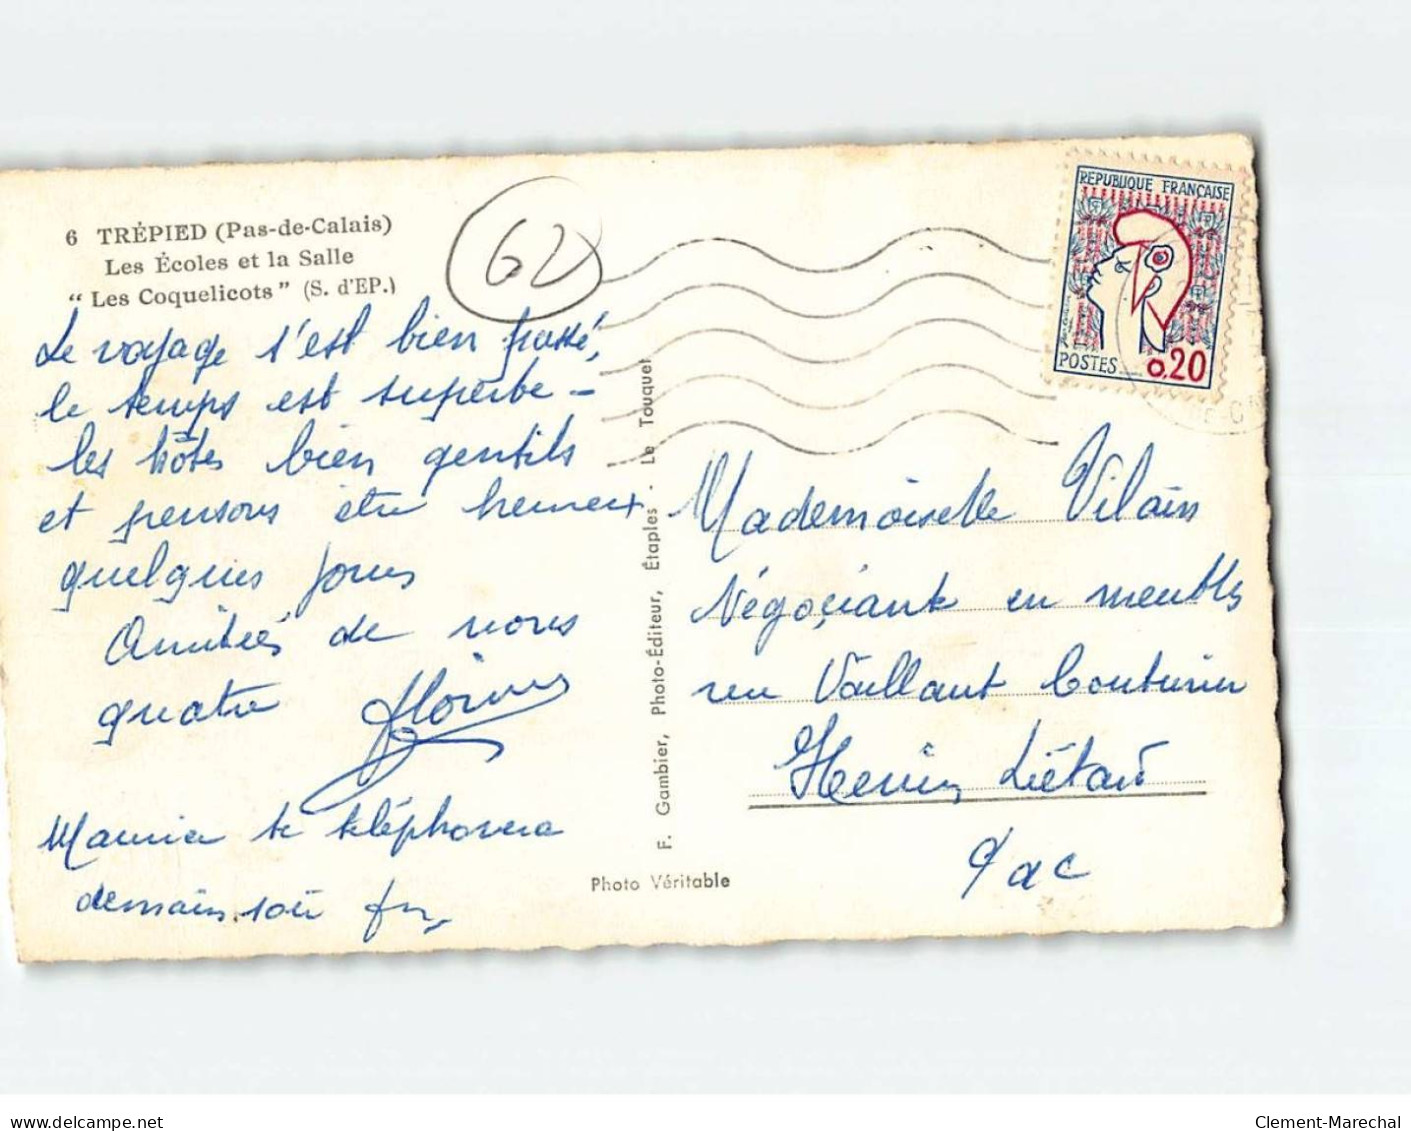 6 TRÉPIED (Pas-de-Calais)
Les Écoles et la Salle
“ Les Coquelicots ” (S. d'EP.)
62
Le voyage s'est bien passé,
le temps est superbe -
les hôtes bien gentils
et pensons être heureux
quelques jours
Amitiés de nous
quatre
Maurice te téléphonera
demain soir
F. Gambier, Photo-Éditeur, Étaples - Le Touquet
Photo Véritable
REPUBLIQUE FRANCAISE
POSTES 0,20
Mademoiselle Vilain
Négociante en meubles
rue Vaillant Couturier
Henin Liétard
Pac
www.delcampe.net
Clement-Marechal